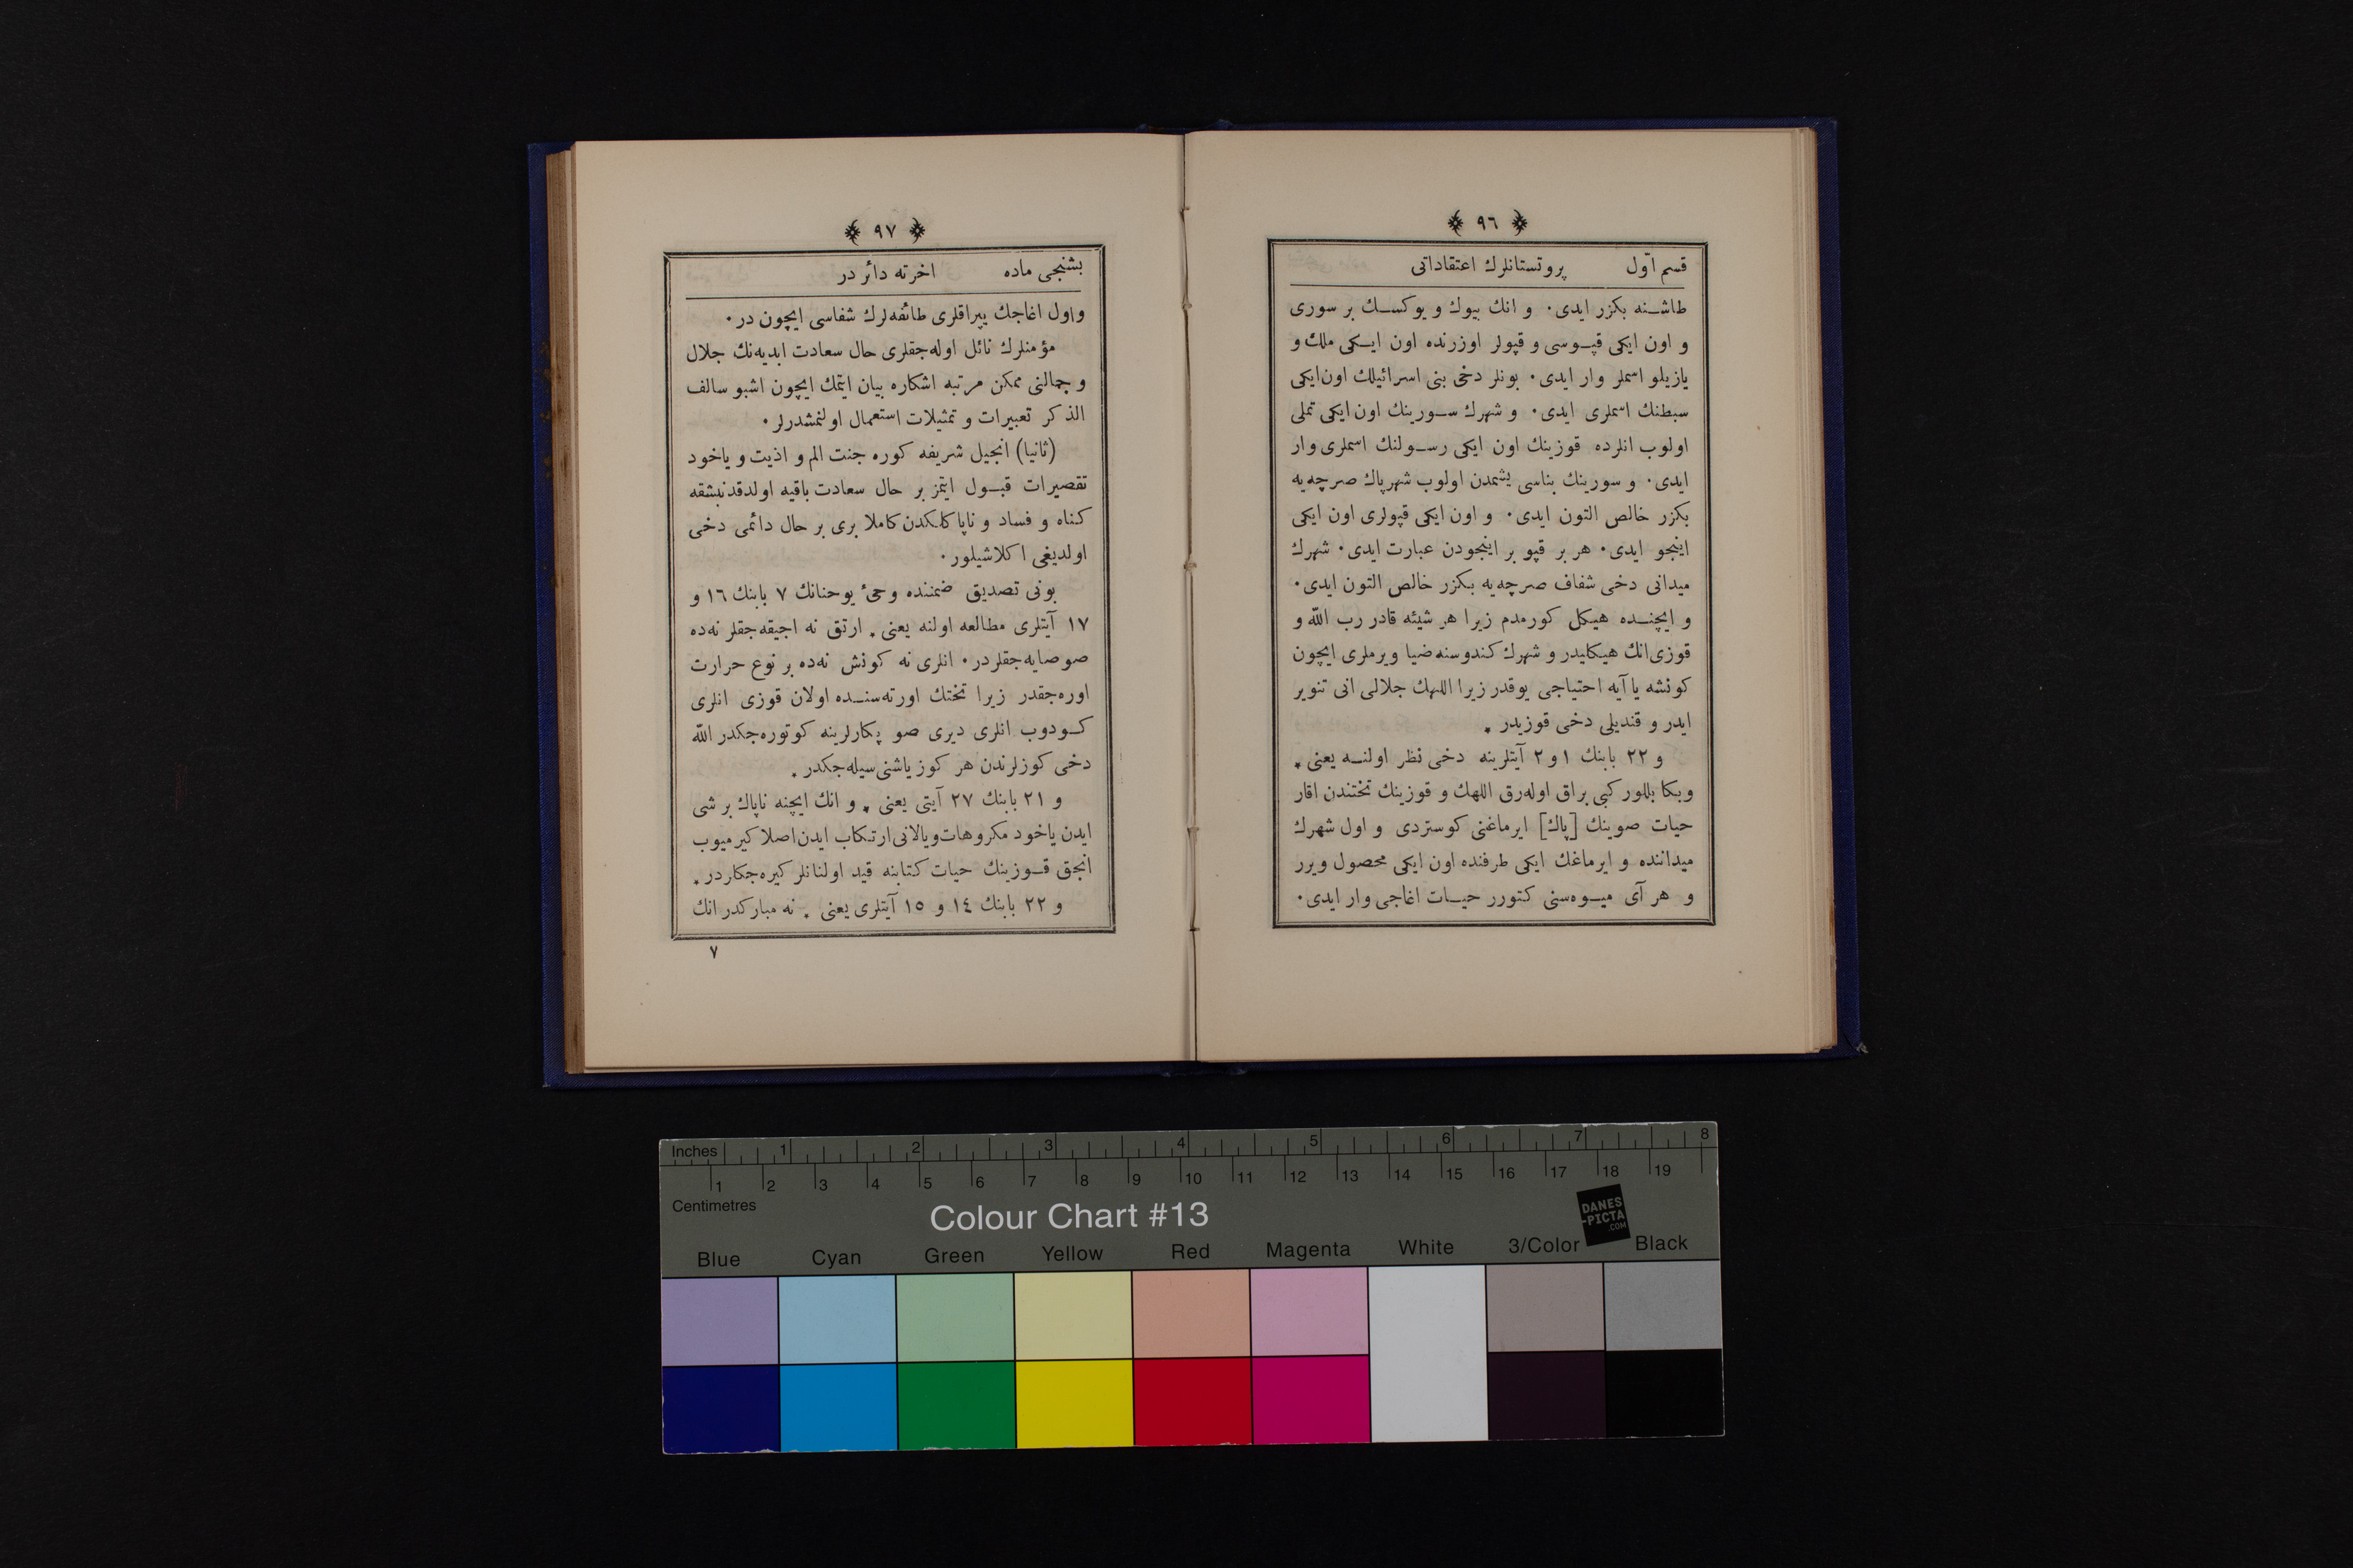 ﴿ ٩٦ ﴾
قسم اوّل پروتستانلرك اعتقاداتی
طاشنه بكزر ایدی٠ و انك بیوك و یوكسك بر سوری
و اون ایكی قپوسی و قپولر اوزرنده اون ایكی ملك و
یازیلو اسملر وار ایدی٠ بونلر دخی بنی اسرائیلك اون ایكی
سبطنك اسملری ایدی٠ و شهرك سورینك اون ایكی تملی
اولوب انلرده قوزینك اون ایكی رسولنك اسملری وار
ایدی٠ و سورینك بناسی یشمدن اولوب شهر پاك صرچه‌یه
بكزر خالص التون ایدی٠ و اون ایكی قپولری اون ایكی
اینجو ایدی٠ هر بر قپو بر اینجودن عبارت ایدی٠ شهرك
میدانی دخی شفاف صرچه‌یه بكزر خالص التون ایدی٠
و ایچنده هیكل كورمدم زیرا هر شیئه قادر رب اللّه و
قوزی انك هیكلیدر و شهرك كندوسنه ضیا ویرملری ایچون
كونشه یا آیه احتیاجی یوقدر زیرا اللهك جلالی انی تنویر
ایدر و قندیلی دخی قوزیدر ٭
و ٢٢ بابنك ١ و ٢ آیتلرینه دخی نظر اولنه یعنی ٭
وبكا بللور كبی براق اوله‌رق اللهك و قوزینك تختندن اقار
حیات صوینك [پاك] ایرماغنی كوستردی و اول شهرك
میداننده و ایرماغك ایكی طرفنده اون ایكی محصول ویرر
و هر آی میوه‌سنی كتورر حیات اغاجی وار ایدی٠
﴿ ٩٧ ﴾
بشنجی ماده اخرته دائر در
واول اغاجك یپراقلری طائفه‌لرك شفاسی ایچون در٠
مؤمنلرك نائل اوله‌جقلری حال سعادت ابدیه‌نك جلال
و جمالنی ممكن مرتبه اشكاره بیان ایتمك ایچون اشبو سالف
الذكر تعبیرات و تمثیلات استعمال اولنمشدرلر٠
(ثانیا) انجیل شریفه كوره جنت الم و اذیت و یاخود
تقصیرات قبول ایتمز بر حال سعادت باقیه اولدقدنبشقه
كناه و فساد و ناپاكلكدن كاملا بری بر حال دائمی دخی
اولدیغی اكلاشیلور٠
بونی تصدیق ضمننده وحیٔ یوحنانك ٧ بابنك ١٦ و
١٧ آیتلری مطالعه اولنه یعنی ٭ ارتق نه اجیقه‌جقلر نه‌ده
صوصایه‌جقلردر٠ انلری نه كونش نه‌ده بر نوع حرارت
اوره‌جقدر زیرا تختك اورته‌سنده اولان قوزی انلری
كودوب انلری دیری صو پكارلرینه كوتوره‌جكدر اللّه
دخی كوزلرندن هر كوز یاشنی سیله‌جكدر٭
و ٢١ بابنك ٢٧ آیتی یعنی ٭ و انك ایچنه ناپاك بر شی
ایدن یاخود مكروهات و یالانی ارتكاب ایدن اصلا كیرمیوب
انجق قوزینك حیات كتابنه قید اولنانلر كیره‌جكلردر٭
و ٢٢ بابنك ١٤ و ١٥ آیتلری یعنی ٭ نه مباركدر انك
٧
Inches 1 2 3 4 5 6 7 8
1 2 3 4 5 6 7 8 9 10 11 12 13 14 15 16 17 18 19
Centimetres
Colour Chart #13
DANES
-PICTA
.COM
Blue Cyan Green Yellow Red Magenta White 3/Color Black